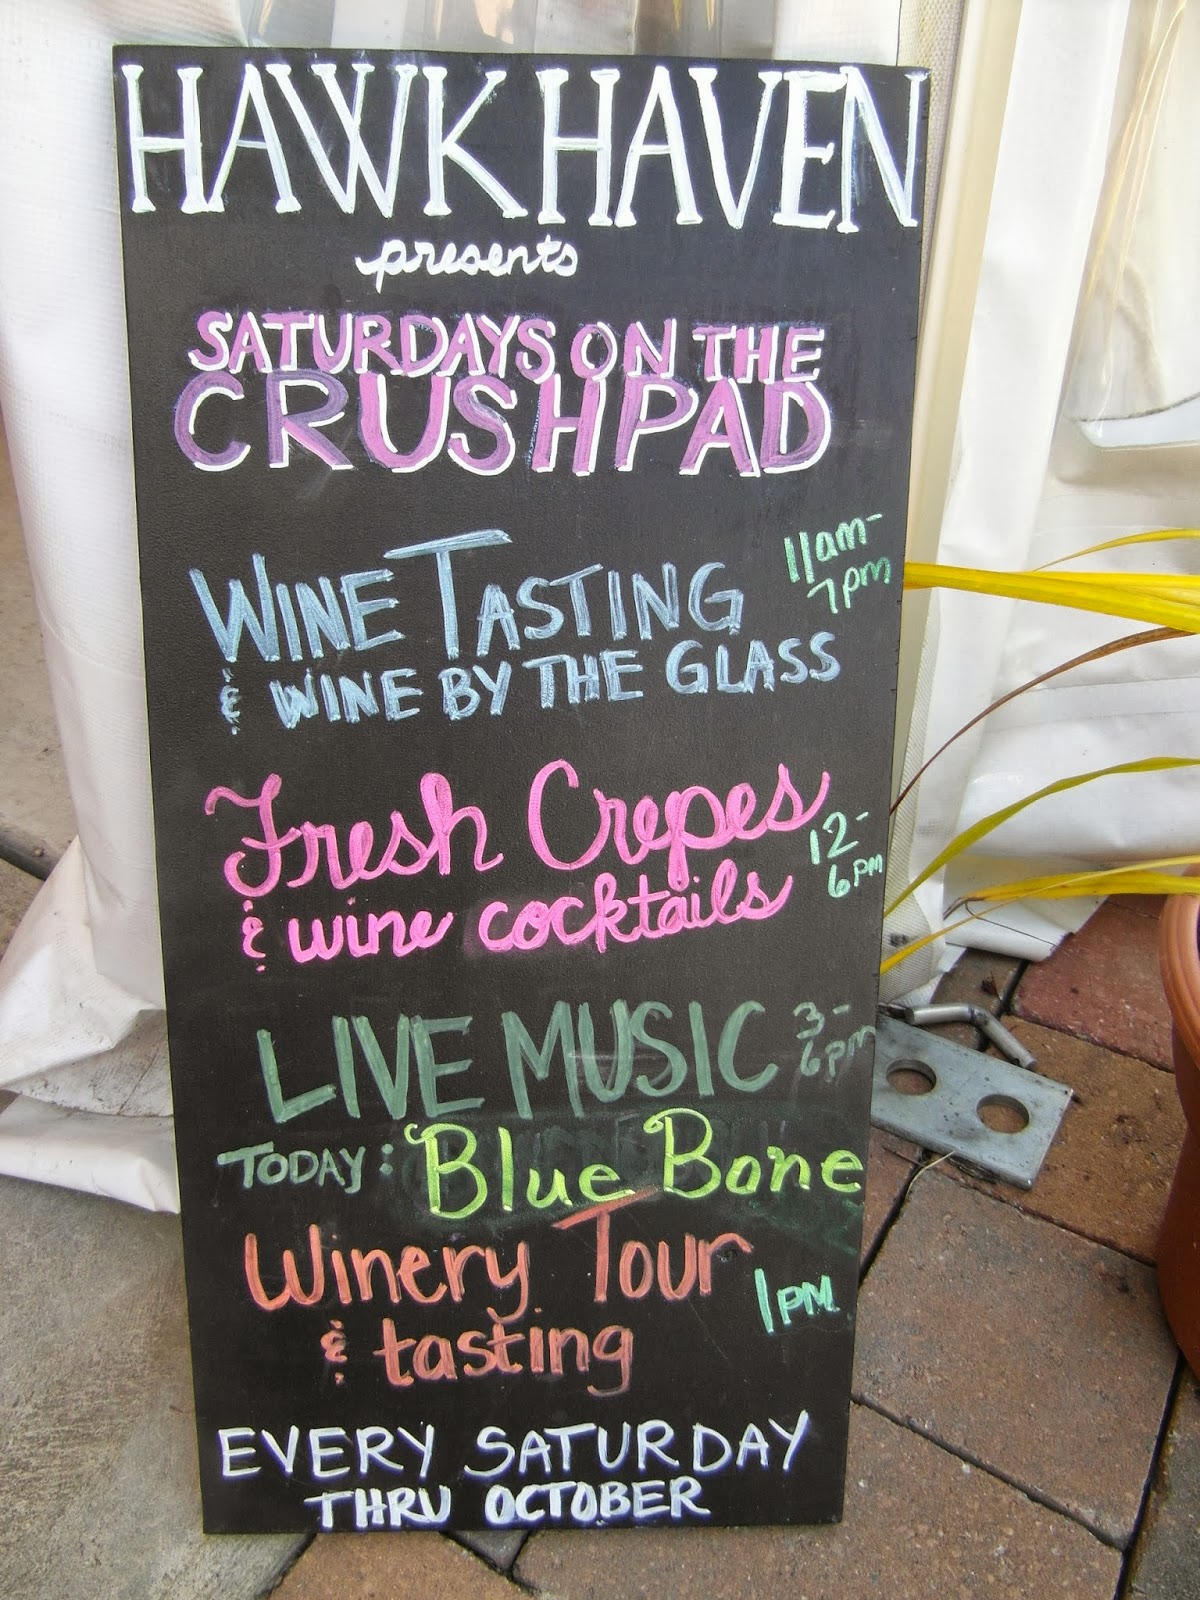 HAWK HAVEN
presents
SATURDAYS ON THE
CRUSHPAD
WINE TASTING
& WINE BY THE GLASS
11am-
7pm
Fresh Crepes
& wine cocktails
12-
6pm
LIVE MUSIC
3-
6pm
TODAY: Blue Bone
Winery Tour
& tasting
1PM
EVERY SATURDAY
THRU OCTOBER